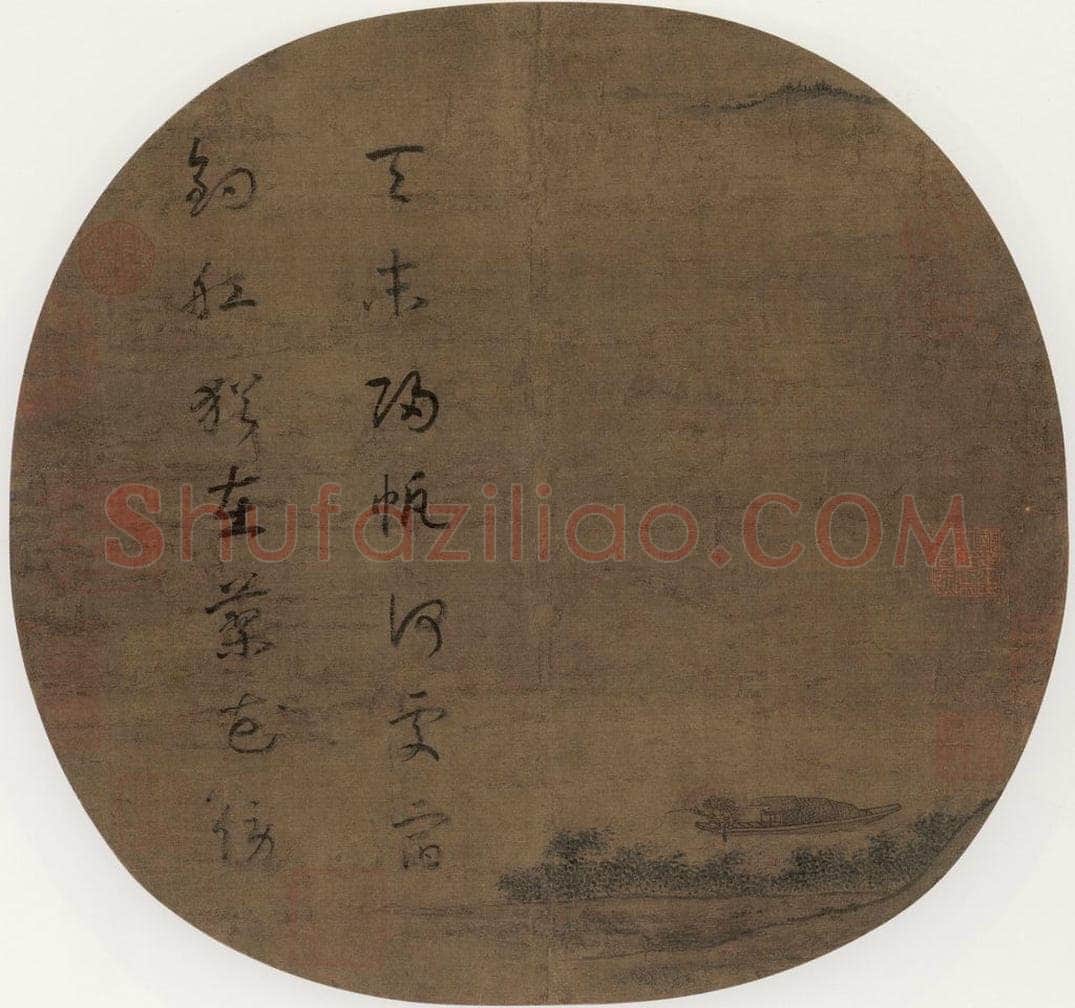 天末歸帆何處宿
釣舡猶在蓼花傍
Shufaziliao.COM